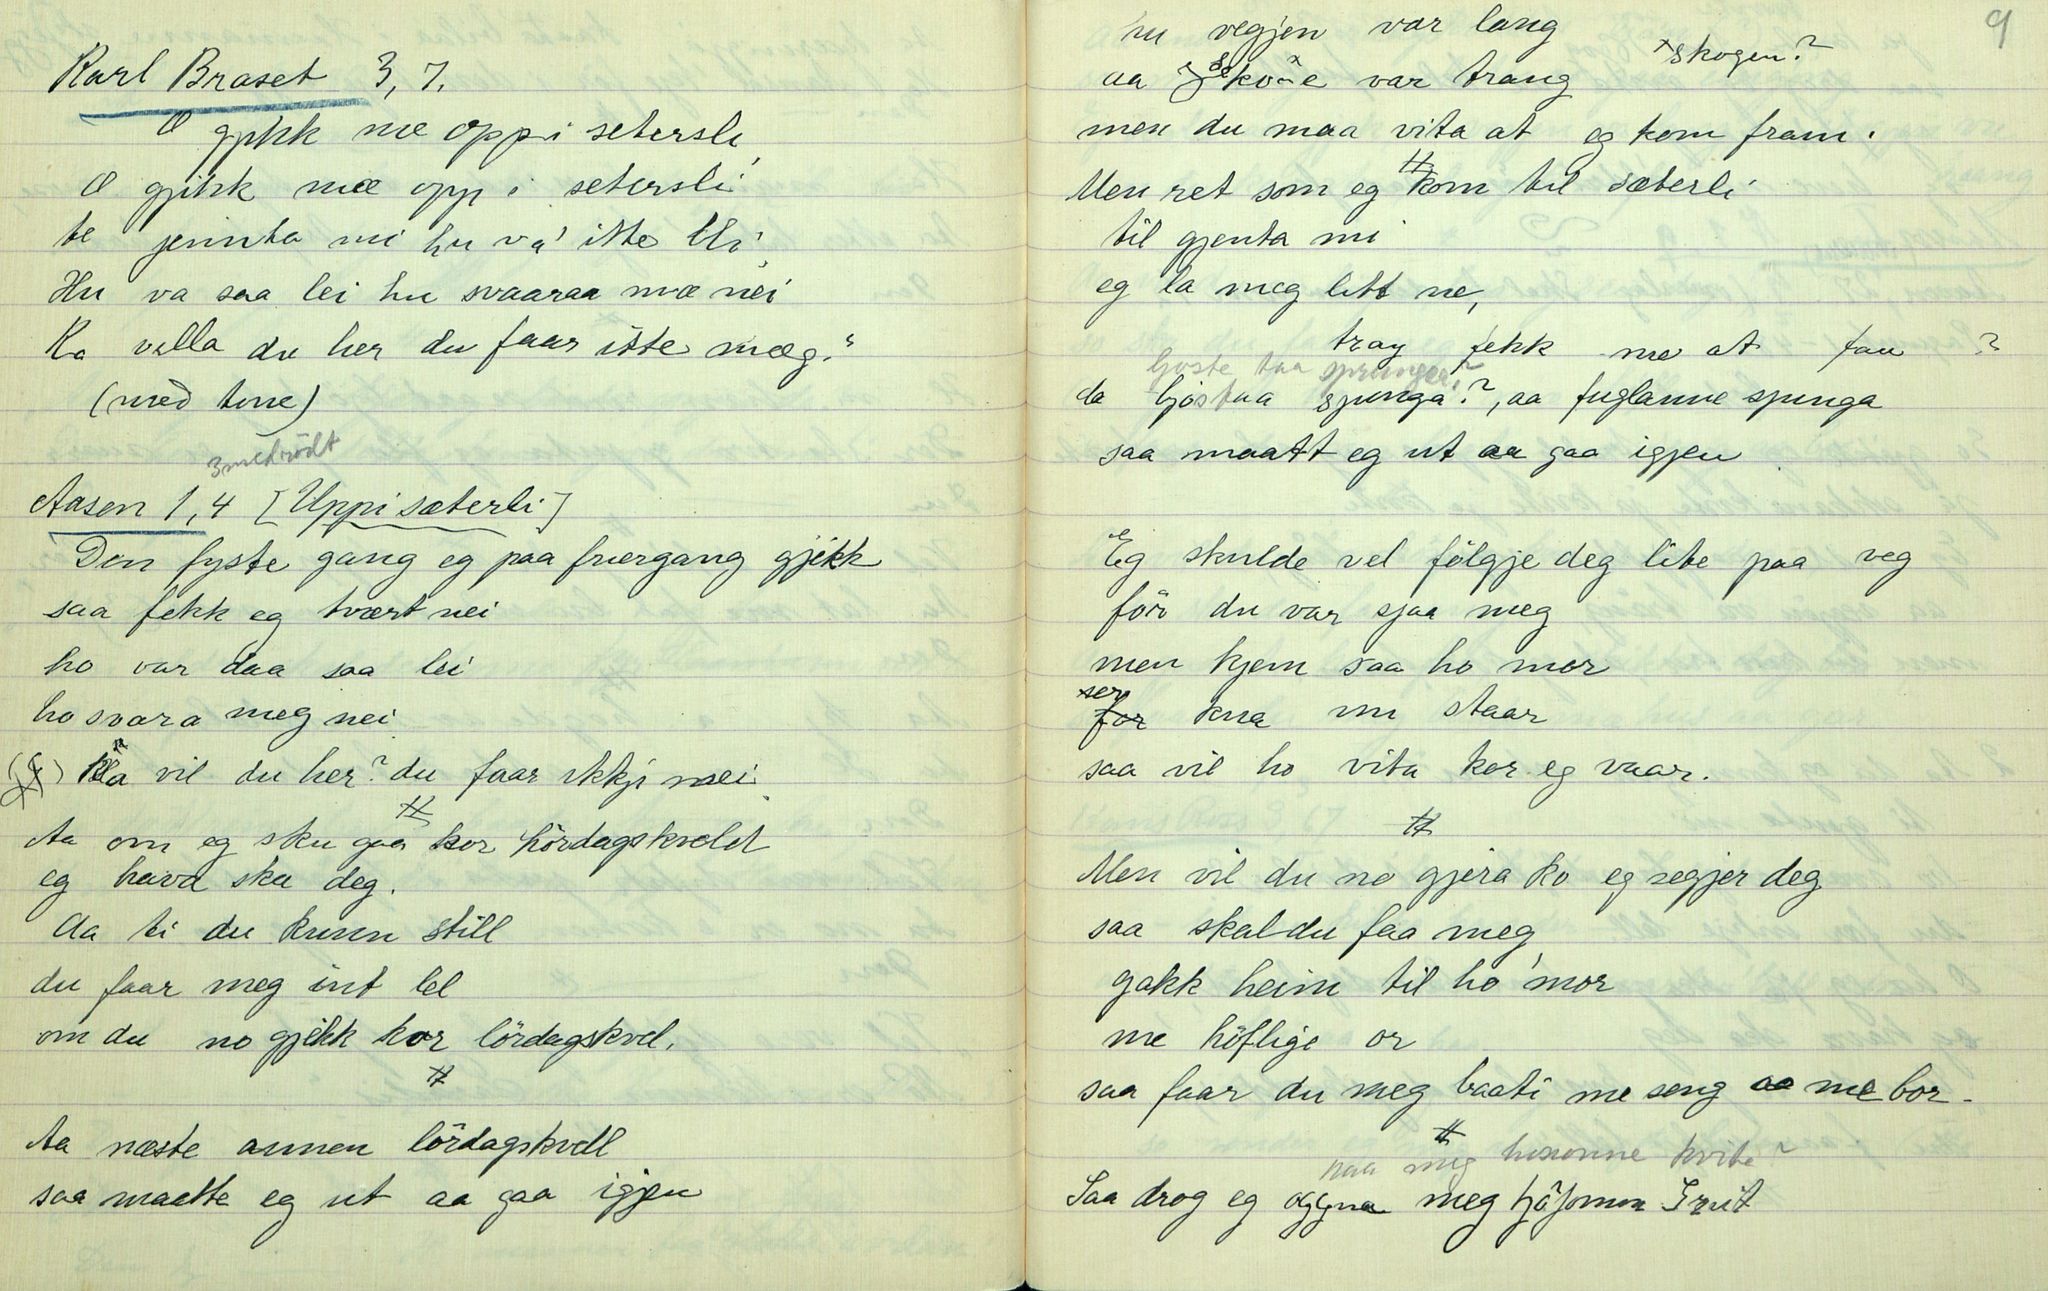 Karl Braset 3, 7.
O gjikk me oppi setersli
O gjikk mæ opp i setersli
te jennta mi hu va' itte bli
Hu va saa lei hu svaaraa mæ nei
Ka villa du her du faar itte mæg?
(med tone)
3 med rødt
Aasen 1, 4 [Uppi sæterli]
Den fyste gang eg paa friergang gjekk
saa fekk eg tvært nei
ho var daa saa lei
ho svara meg nei
Ka vil du her? du faar ikkji mei
Aa om eg sku gaa kor lördagskveld
eg hava ska deg.
Aa ti du kunn still
du faar meg int lel
om du no gjekk kor lördagskvel.
Aa næste annen lördagskvell
saa maatte eg ut aa gaa igjen
9
nu vegjen var lang
xskogen?
aa skoxe var trang
men du maa vita at eg kom fram.
Men ret som eg kom til sæterli
til gjenta mi
eg la meg litt ne,
tray fekk me at fau ?
ljoste taa sprungee?
da ljostaa spunga?, aa fuglanne spunga
saa maatt eg ut aa gaa igjen
Eg skulde vel fölgje deg lite paa veg
för du var sjaa meg
men kjem saa ho mor
xser
for kua um staar
saa vil ho vita kor eg vaar.
Men vil du no gjera ko eg segjer deg
saa skal du faa meg
gakk heim til ho mor
me höflige or
saa faar du meg baati me seng aa me bor.
paa meg hosonne kvite?
Saa drog eg meg